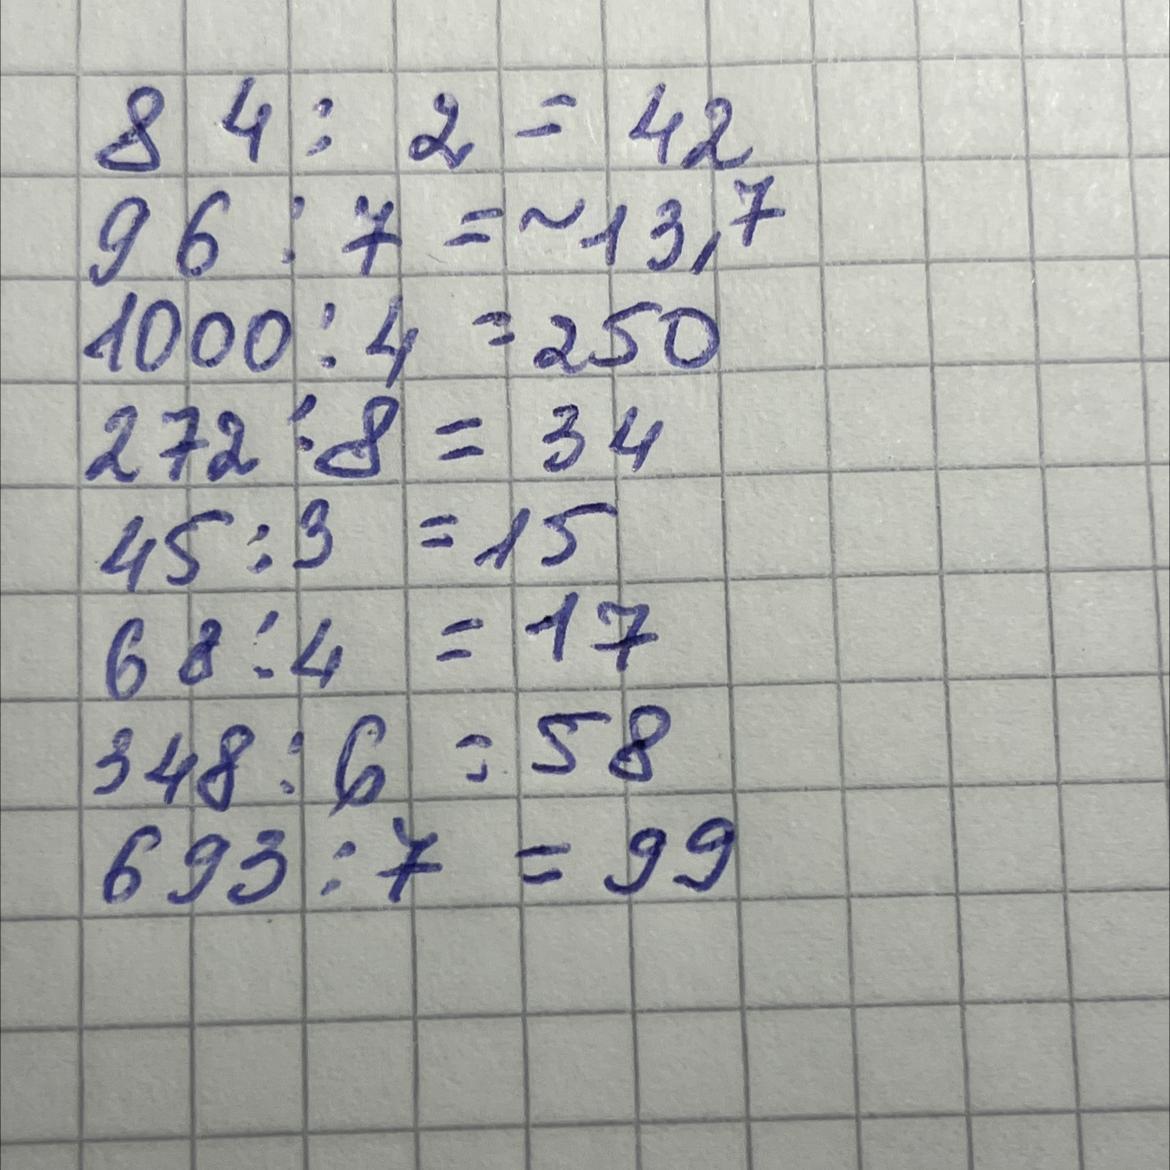 84 : 2 = 42
96 : 7 = ~13,7
1000 : 4 = 250
272 : 8 = 34
45 : 3 = 15
68 : 4 = 17
348 : 6 = 58
693 : 7 = 99